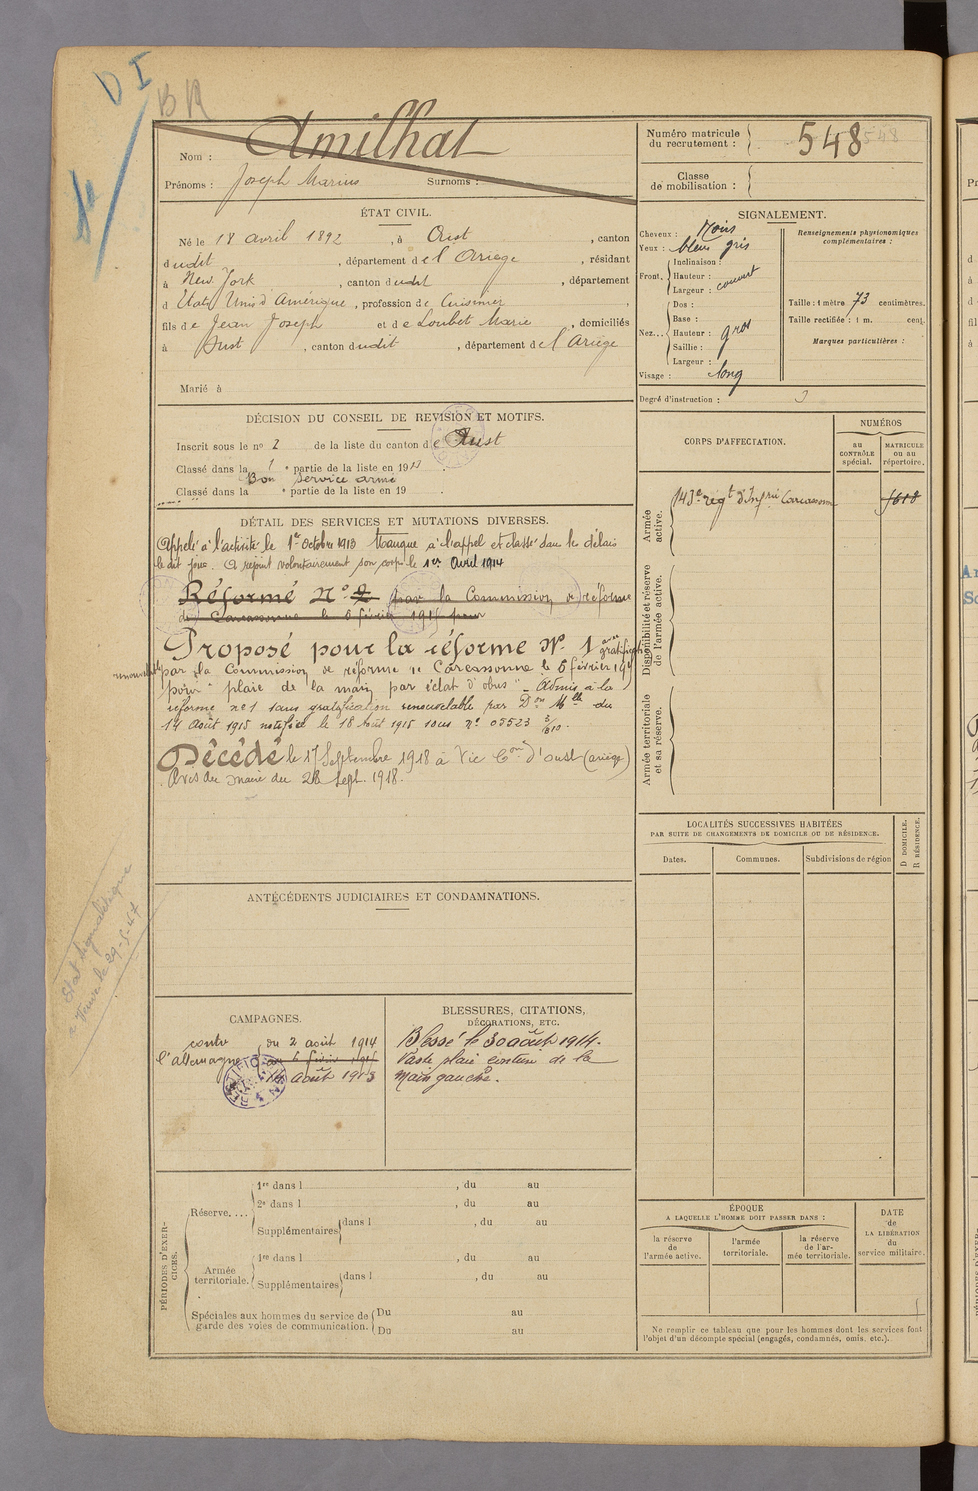 D I
BR
Nom : Amilhat
Prénoms : Joseph Marius Surnoms :
Numéro matricule du recrutement : 548
548
Classe de mobilisation :
ÉTAT CIVIL.
Né le 18 avril 1892, à Oust, canton
dudit, département de l'Ariège, résidant
à New York, canton dudit, département
d Etats Unis d'Amérique, profession de Cuisinier,
fils de Jean Joseph et de Loubet Marie, domiciliés
à Oust, canton dudit, département de l'Ariège
Marié à
SIGNALEMENT.
Cheveux : Noirs
Yeux : bleus gris
Front. Inclinaison :
Hauteur :
Largeur : couvert
Nez... Dos :
Base :
Hauteur : gros
Saillie :
Largeur :
Visage : long
Renseignements physionomiques complémentaires :
Taille : 1 mètre 73 centimètres.
Taille rectifiée : 1 m. cent.
Marques particulières :
Degré d'instruction : 3
DÉCISION DU CONSEIL DE REVISION ET MOTIFS.
Inscrit sous le n° 2 de la liste du canton de Oust
Classé dans la 1e partie de la liste en 1913.
Bon service armé
Classé dans la e partie de la liste en 19 .
DÉTAIL DES SERVICES ET MUTATIONS DIVERSES.
Appelé à l'activité le 1er Octobre 1913 Manque à l'appel et classé dans les délais
le dit jour. A rejoint volontairement son corps le 1er Avril 1914
Réformé N° 2 par la Commission de réforme
de Carcassonne le 6 février 1915 pour
Proposé pour la réforme N° 1 avec gratification
renouvelable par la Commission de réforme de Carcassonne le 6 février 1915
pour "plaie de la main par éclat d'obus" _ Admis à la
réforme n°1 sans gratification renouvelable par Don Mlle du
14 Août 1915 notifiée le 18 Août 1915 sous n° 03523
Décédé le 17 Septembre 1918 à Vic Con d'Oust (Ariège)
Avis du Maire du 26 Sept. 1918.
CORPS D'AFFECTATION.
NUMÉROS
au CONTRÔLE spécial.
MATRICULE ou au répertoire.
Armée active.
143e régt d'Infrie Carcassonne
Disponibilité et réserve de l'armée active.
Armée territoriale et sa réserve.
LOCALITÉS SUCCESSIVES HABITÉES
PAR SUITE DE CHANGEMENTS DE DOMICILE OU DE RÉSIDENCE.
Dates.
Communes.
Subdivisions de région
D DOMICILE.
R RÉSIDENCE.
ANTÉCÉDENTS JUDICIAIRES ET CONDAMNATIONS.
Etat signalétique
à Veuve le 29-5-47
CAMPAGNES.
contre l'allemagne
du 2 août 1914
au 6 février 1915
14 août 1915
RECTIFICATION
BLESSURES, CITATIONS,
DÉCORATIONS, ETC.
Blessé le 30 août 1914.
Vaste plaie contuse de la
main gauche.
PÉRIODES D'EXERCICES.
Réserve....
1re dans l , du au
2e dans l , du au
Supplémentaires dans l , du au
Armée territoriale.
1re dans l , du au
Supplémentaires dans l , du au
Spéciales aux hommes du service de
garde des voies de communication.
Du au
Du au
ÉPOQUE
A LAQUELLE L'HOMME DOIT PASSER DANS :
la réserve de l'armée active.
l'armée territoriale.
la réserve de l'armée territoriale.
DATE
de
LA LIBÉRATION
du
service militaire.
Ne remplir ce tableau que pour les hommes dont les services font
l'objet d'un décompte spécial (engagés, condamnés, omis, etc.).